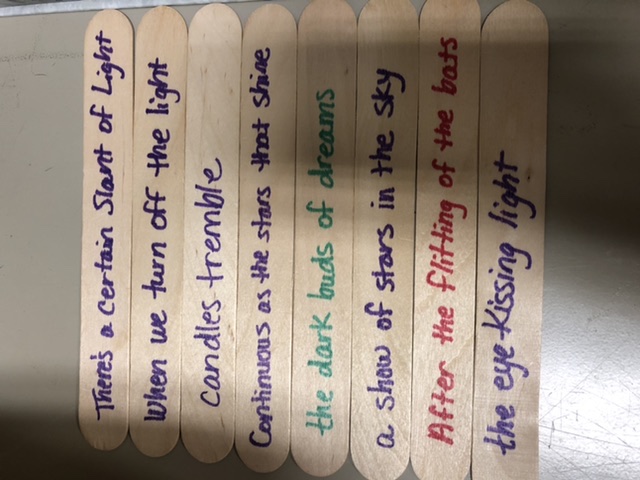 There's a certain Slant of Light
When we turn off the light
candles tremble
Continuous as the stars that shine
the dark buds of dreams
a show of stars in the sky
After the flitting of the bats
the eye-kissing light